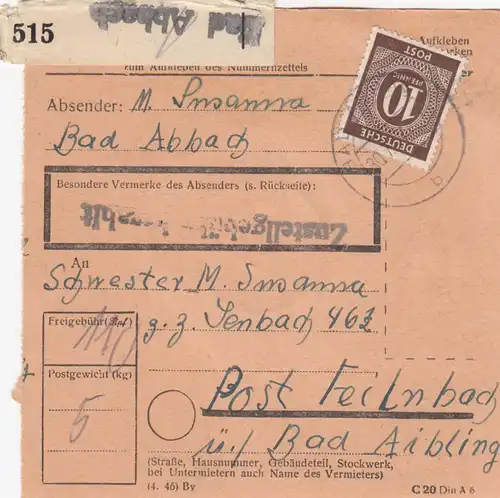 Bad Abbach
515
Aufkleben
zum Aufkleben des Nummernzettels
Absender: M. Susanna
Bad Abbach
DEUTSCHE POST
10
PFENNIG
Besondere Vermerke des Absenders (s. Rückseite):
Zustellgebühr bezahlt
An
Schwester M. Susanna
z. Z. Jenbach 46
Freigebühr
110
Postgewicht (kg)
5
Post Feilnbach
ü./ Bad Aibling
(Straße, Hausnummer, Gebäudeteil, Stockwerk,
bei Untermietern auch Name des Vermieters)
(4. 46) By
C 20 Din A 6